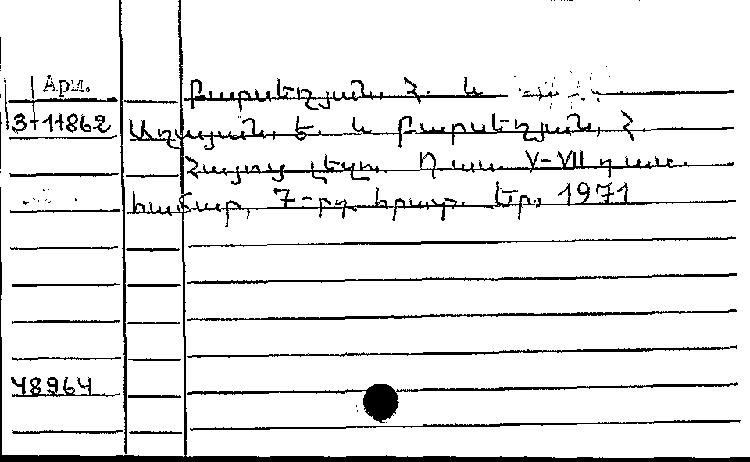 Арм.
Բարսեղյան, Հ. և
3-11862
Աղայան, Է. և Բարսեղյան, Հ.
Հայոց լեզու. Դաս. V-VII դաս.
համար, 7-րդ հրատ. Եր., 1971
48964